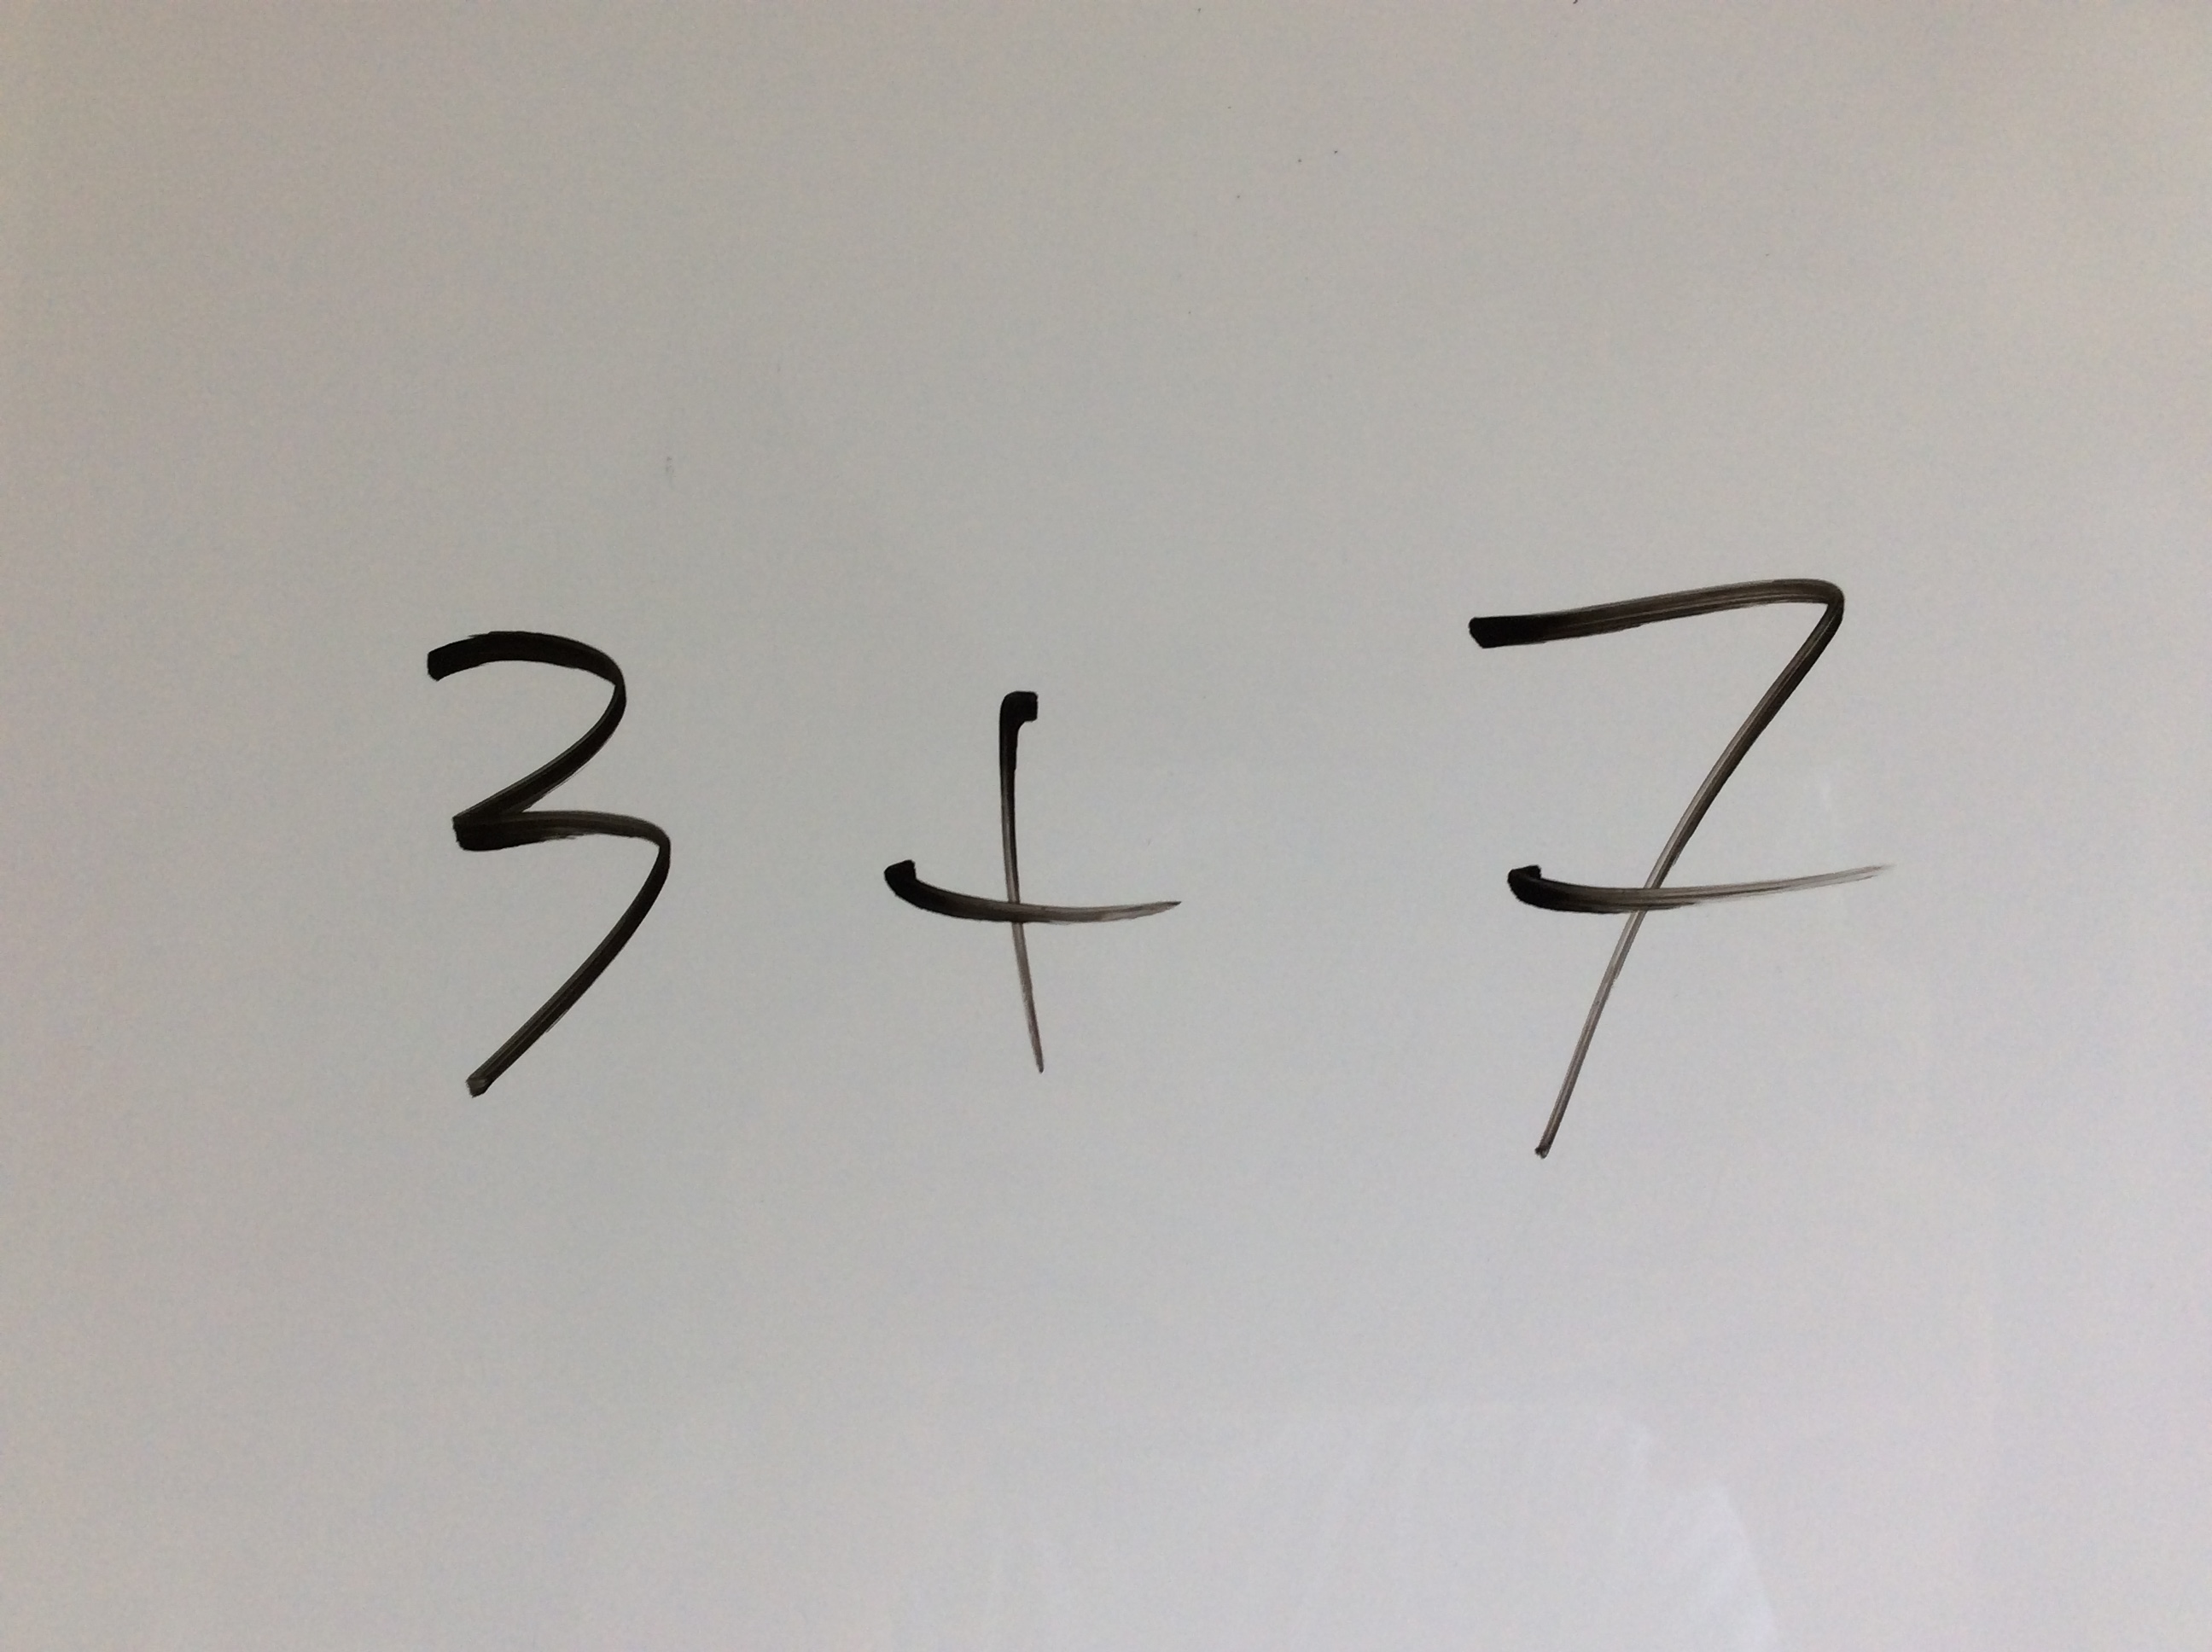 3 + 7